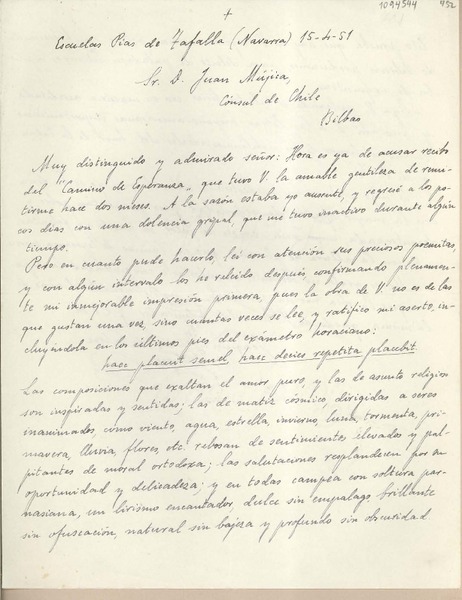 +
1094544 452
Escuelas Pías de Tafalla (Navarra) 15-4-51
Sr. D. Juan Mújica,
Cónsul de Chile
Bilbao
Muy distinguido y admirado señor: Hora es ya de acusar recibo
del "Camino de Esperanza", que tuvo V. la amable gentileza de remi-
tirme hace dos meses. A la sazón estaba yo ausente, y regresé a los po-
cos días con una dolencia gripal, que me tuvo inactivo durante algún
tiempo.
Pero en cuanto pude hacerlo, leí con atención sus preciosos poemitas,
y con algún intervalo los he releído después, confirmando plenamen-
te mi inmejorable impresión primera, pues la obra de V. no es de las
que gustan una vez, sino cuantas veces se lee, y ratifico mi aserto, in-
cluyéndola en los últimos pies del exámetro horaciano:
haec placuit semel, haec decies repetita placebit
Las composiciones que exaltan el amor puro, y las de asunto religioso
son inspiradas y sentidas; las de matiz cósmico, dirigidas a seres
inanimados como viento, agua, estrella, invierno, luna, tormenta, pri-
mavera, lluvia, flores, etc. rebosan de sentimientos elevados y pal-
pitantes de moral ortodoxa; las salutaciones resplandecen por su
oportunidad y delicadeza; y en todas campea con soltura par-
nasiana, un lirismo encantador, dulce sin empalago, brillante
sin ofuscación, natural sin bajeza y profundo sin obscuridad